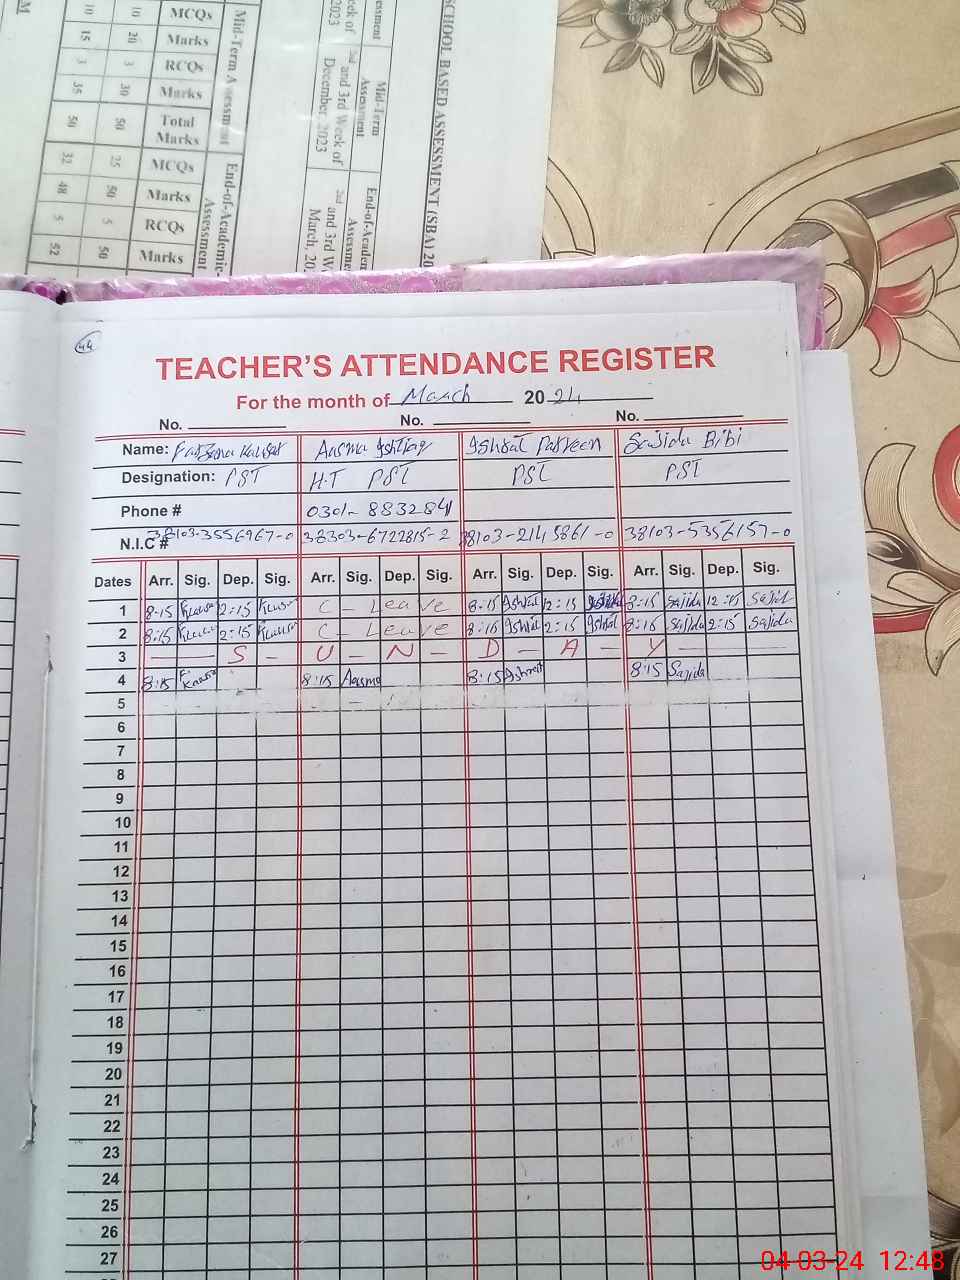 SCHOOL BASED ASSESSMENT (SBA) 20
Mid-Term Assessment
End-of-Academic-
Assessment
MCQs 10 10
Marks 20 15
RCQs 3 3
Marks 30 35
Total Marks 50 50
MCQs 25 32
Marks 50 48
RCQs 5 5
Marks 50 52
Mid-Term Assessment
2nd and 3rd Week of December, 2023
44
TEACHER'S ATTENDANCE REGISTER
For the month of March 2024
No. No. No.
Name: Kausar Aasma Ishtiaq Ishrat Parveen Sajida Bibi
Designation: PST H.T PST PST PST
Phone # 0301- 8832841
N.I.C # 38103-3556967-0 38303-6722815-2 38103-2145861-0 38103-5356157-0
Dates Arr. Sig. Dep. Sig. Arr. Sig. Dep. Sig. Arr. Sig. Dep. Sig. Arr. Sig. Dep. Sig.
1 8:15 Kausar 12:15 Kausar C - Leave 8:15 Ishrat 12:15 Ishrat 8:15 Sajida 12:15 Sajid
2 8:15 Kausar 2:15 Kausar C - Leave 8:15 Ishrat 2:15 Ishrat 8:15 Sajida 2:15 Sajida
3 — S - U - N - D - A - Y — —
4 8:15 F. Kausar 8:15 Aasma 8:15 Ishrat 8:15 Sajida
5
6
7
8
9
10
11
12
13
14
15
16
17
18
19
20
21
22
23
24
25
26
27
04-03-24 12:48